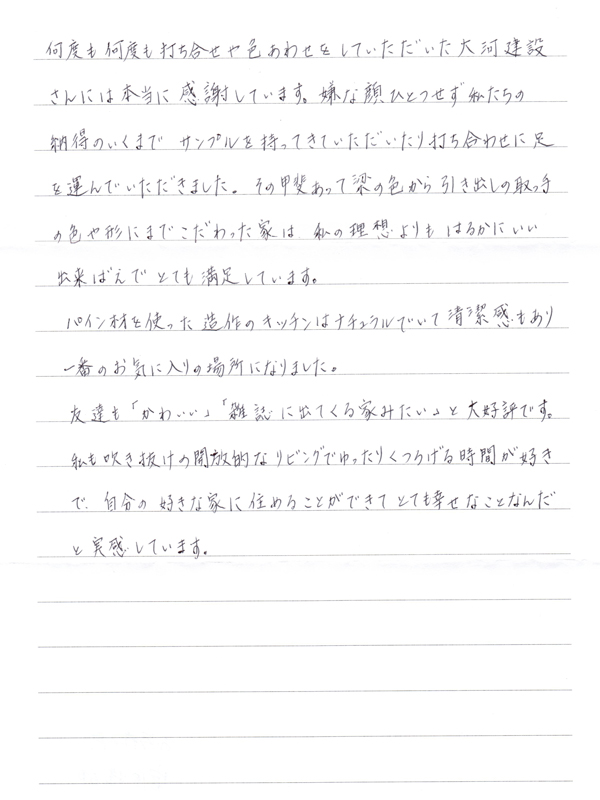 何度も何度も打ち合せや色あわせをしていただいた大河建設
さんには本当に感謝しています。嫌な顔ひとつせず私たちの
納得のいくまで サンプルを持ってきていただいたり打ち合わせに足
を運んでいただきました。その甲斐あって梁の色から引き出しの取っ手
の色や形にまでこだわった家は 私の理想よりもはるかにいい
出来ばえでとても満足しています。
パイン材を使った造作のキッチンはナチュラルでいて清潔感もあり
一番のお気に入りの場所になりました。
友達も「かわいい」「雑誌に出てくる家みたい」と大好評です。
私も吹き抜けの開放的なリビングでゆったりくつろげる時間が好き
で、自分の好きな家に住めることができてとても幸せなことなんだ
と実感しています。